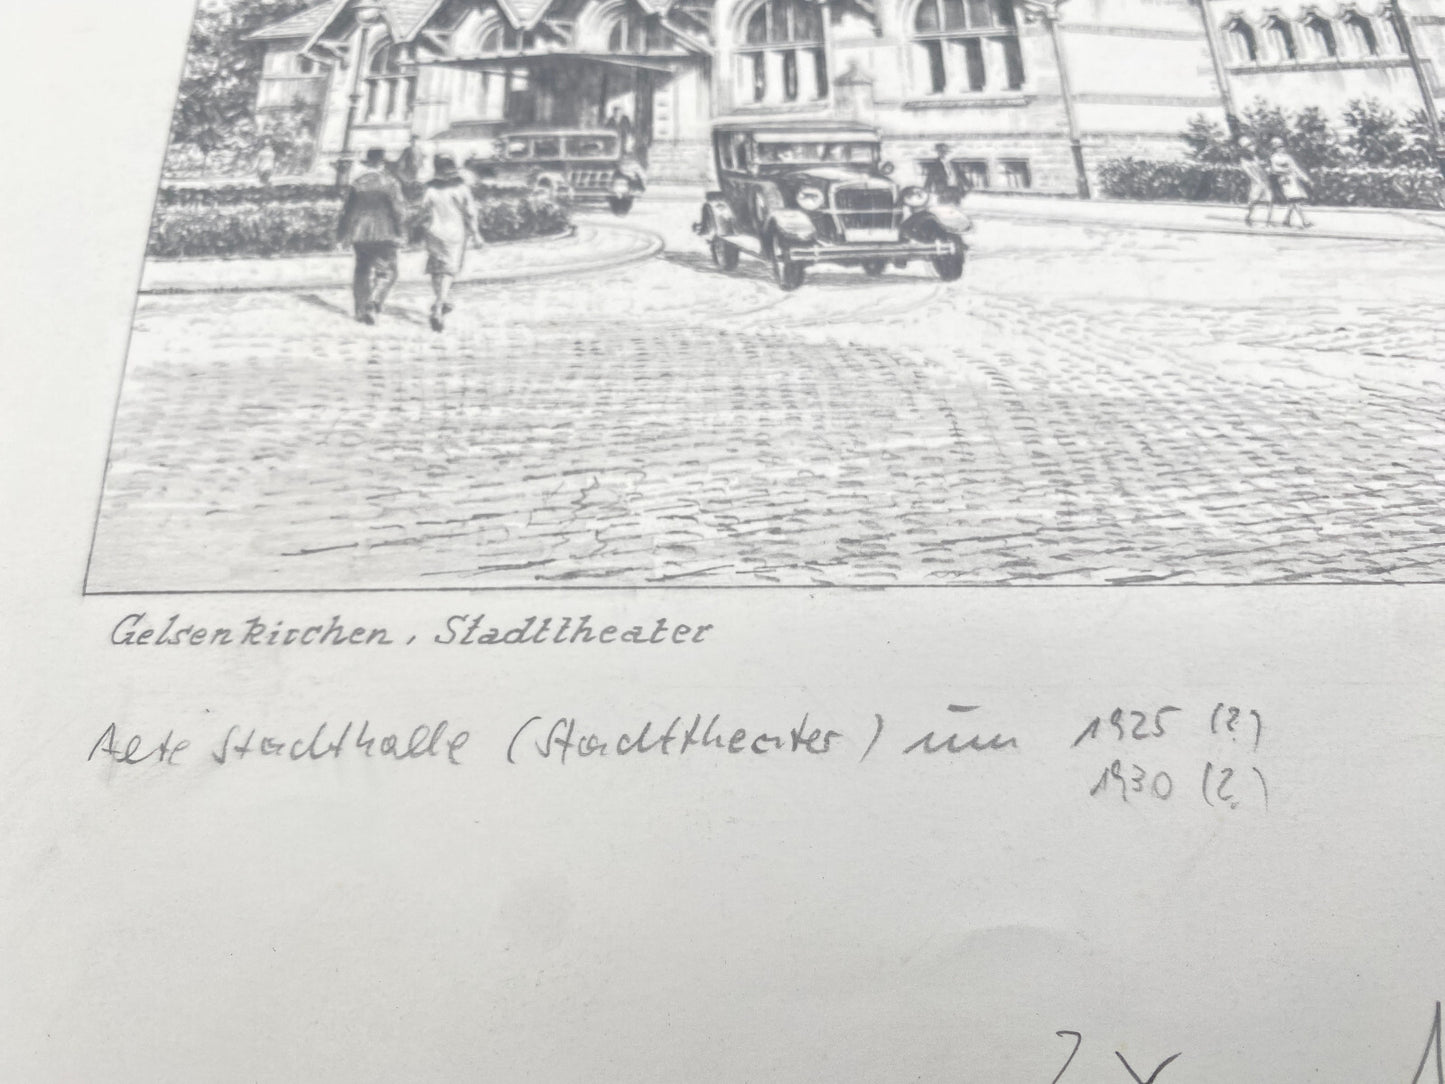 Gelsenkirchen, Stadttheater
Alte Stadthalle (Stadttheater) um 1925 (?)
1930 (?)